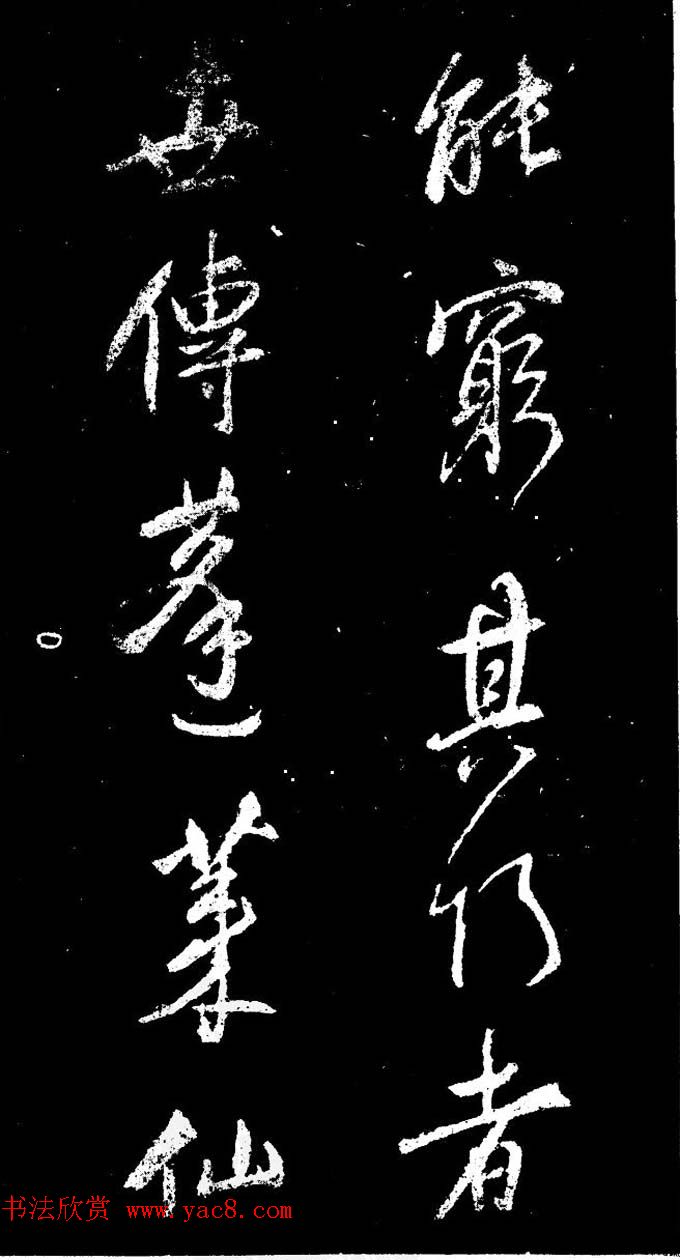 能窮其者
世傳蓬萊仙
书法欣赏 www.yac8.com